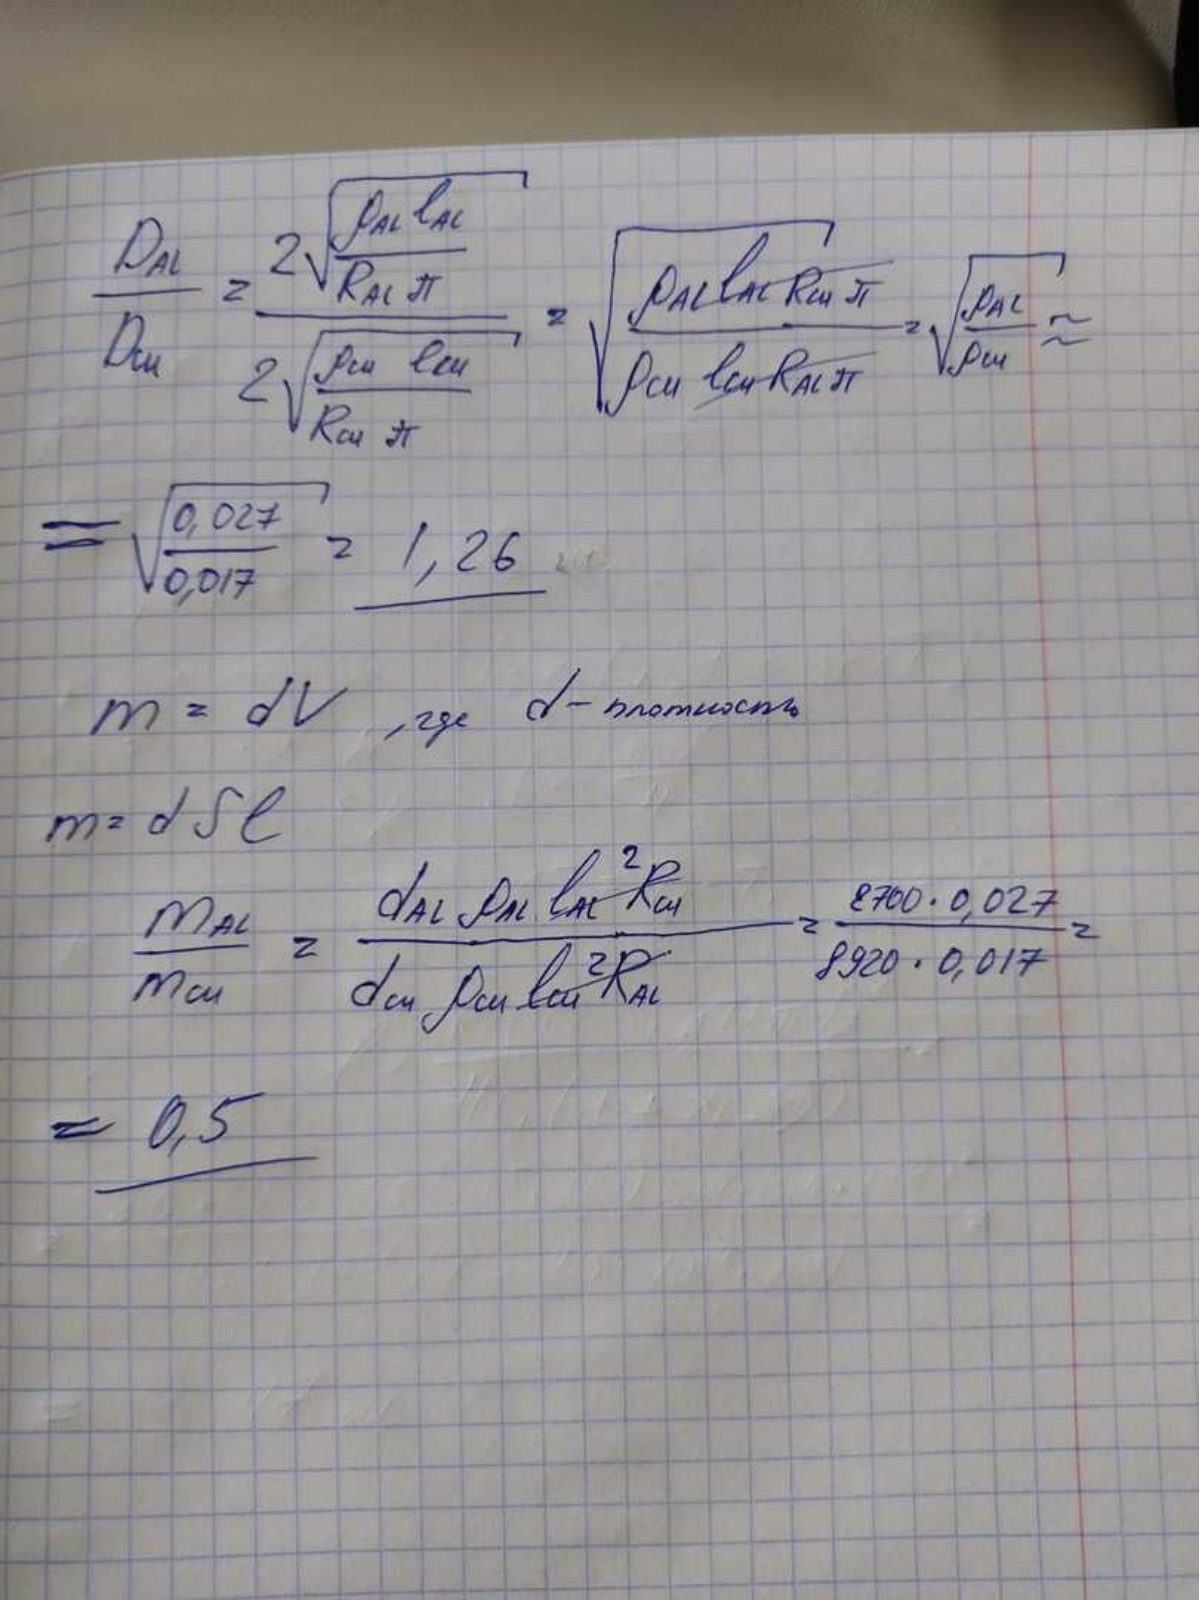 D_AL / D_cu = 2√(ρ_AL l_AL / R_AL π) / 2√(ρ_cu l_cu / R_cu π) = √(ρ_AL l_AL R_cu π / ρ_cu l_cu R_AL π) = √(ρ_AL / ρ_cu) ≈
= √(0,027 / 0,017) = 1,26
m = dV , где d - плотность
m = d S l
m_AL / m_cu = d_AL ρ_AL l_AL² R_cu / d_cu ρ_cu l_cu² R_AL = 2700 · 0,027 / 8920 · 0,017 =
= 0,5